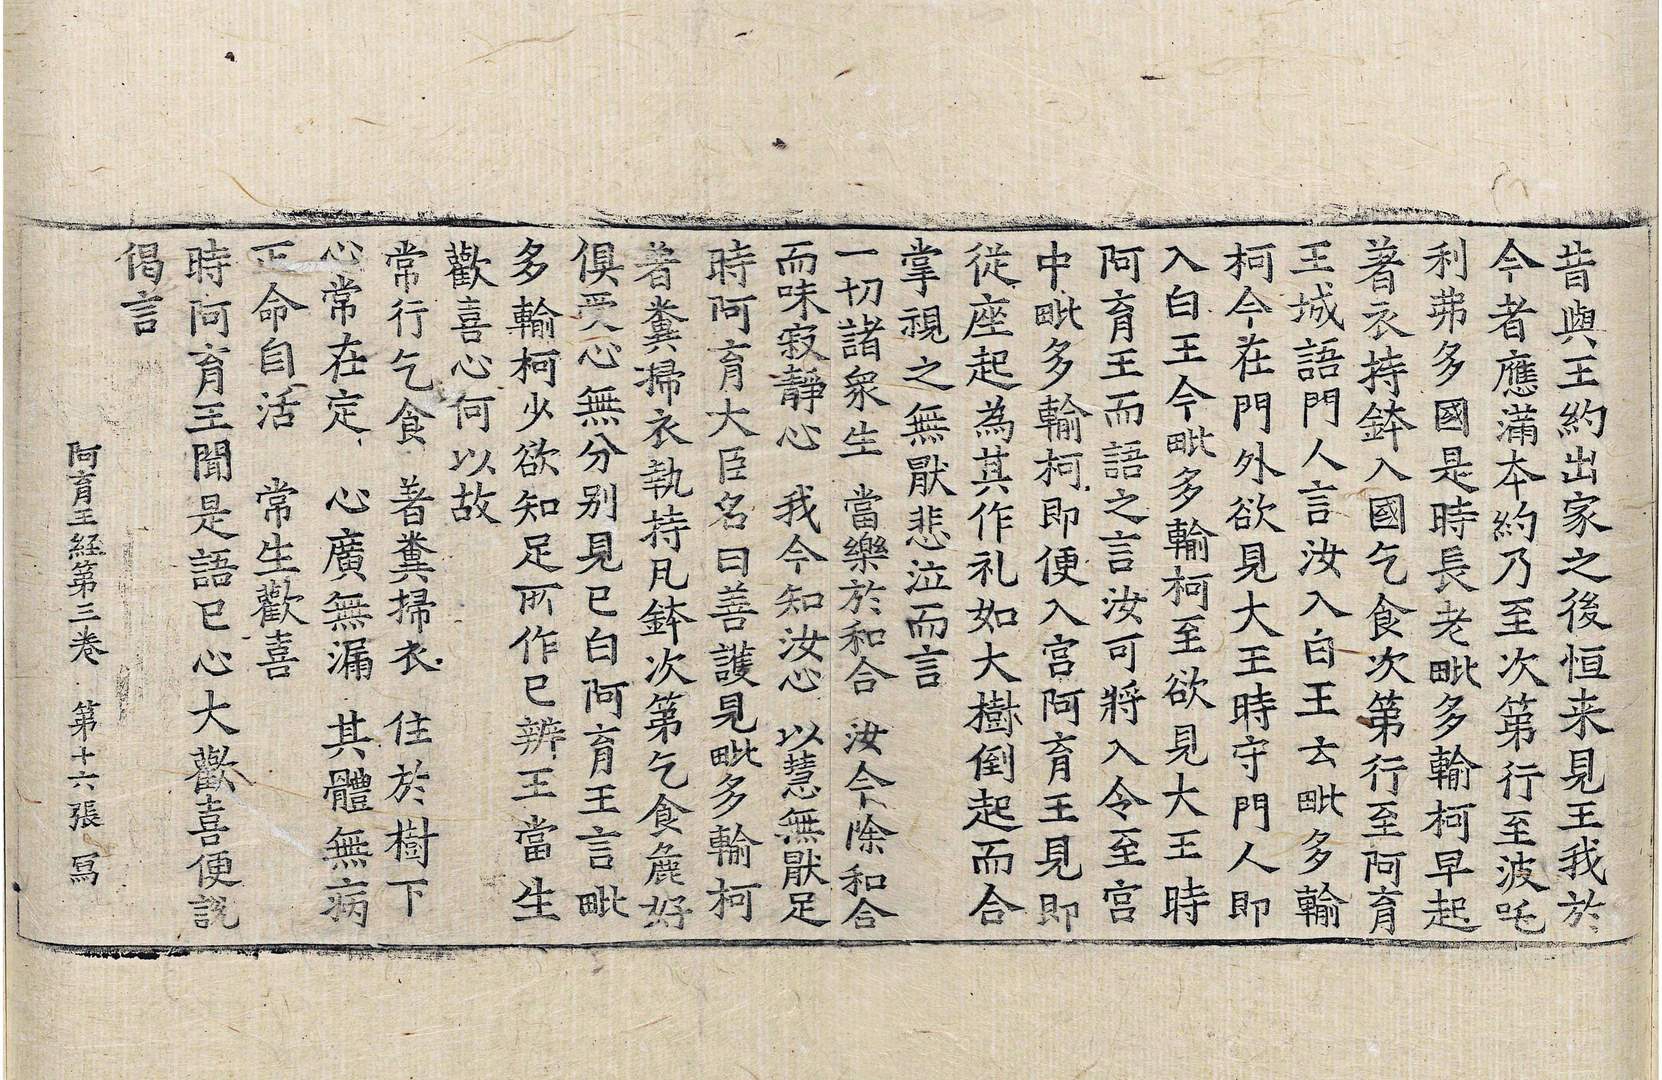 昔與王約出家之後恒来見王我於
今者應滿本約乃至次第行至波吒
利弗多國是時長老毗多輸柯早起
著衣持鉢入國乞食次第行至阿育
王城語門人言汝入白王云毗多輸
柯今在門外欲見大王時守門人即
入白王今毗多輸柯至欲見大王時
阿育王而語之言汝可將入令至宮
中毗多輸柯即便入宮阿育王見即
從座起為其作礼如大樹倒起而合
掌視之無猒悲泣而言
一切諸衆生　當樂於和合　汝今除和合
而味寂靜心　我今知汝心　以慧無猒足
時阿育大臣名曰善護見毗多輸柯
著糞掃衣執持凡鉢次第乞食麁好
俱受心無分別見已白阿育王言毗
多輸柯少欲知足所作已辨王當生
歡喜心何以故
常行乞食　著糞掃衣　住於樹下
心常在定　心廣無漏　其體無病
正命自活　常生歡喜
時阿育王聞是語已心大歡喜便說
偈言
阿育王経第三卷　第十六張　寫